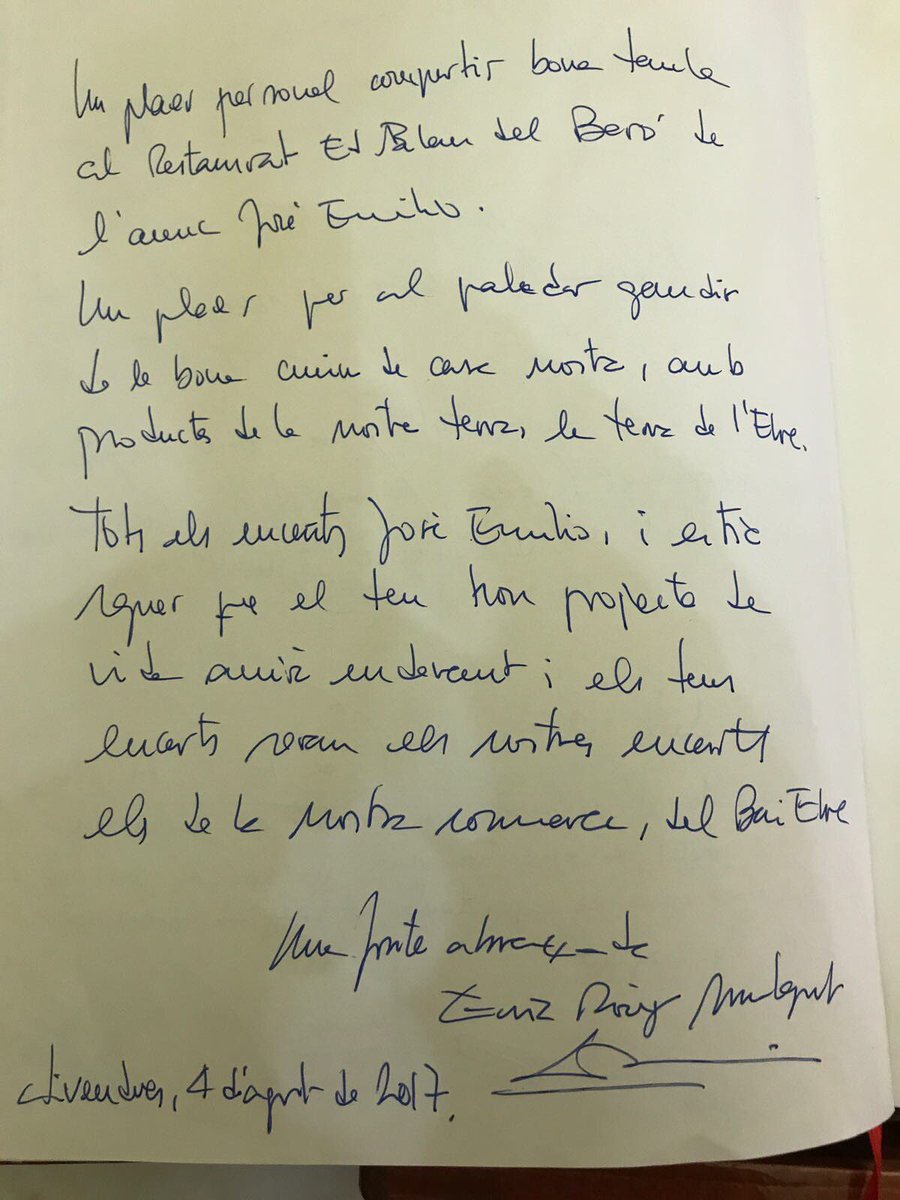 Un plaer personal compartir bona taula
al Restaurant El Palau del Baró de
l'amic José Emilio.
Un plaer per al paladar gaudir
de la bona cuina de casa nostra, amb
productes de la nostra terra, la terra de l'Ebre.
Tots els encerts José Emilio, i estic
segur que el teu bon projecte de
vida anirà endavant i els teus
encerts seran els nostres encerts
els de la nostra comarca, del Baix Ebre
Una forte abraçada de
Divendres, 4 d'agost de 2017.